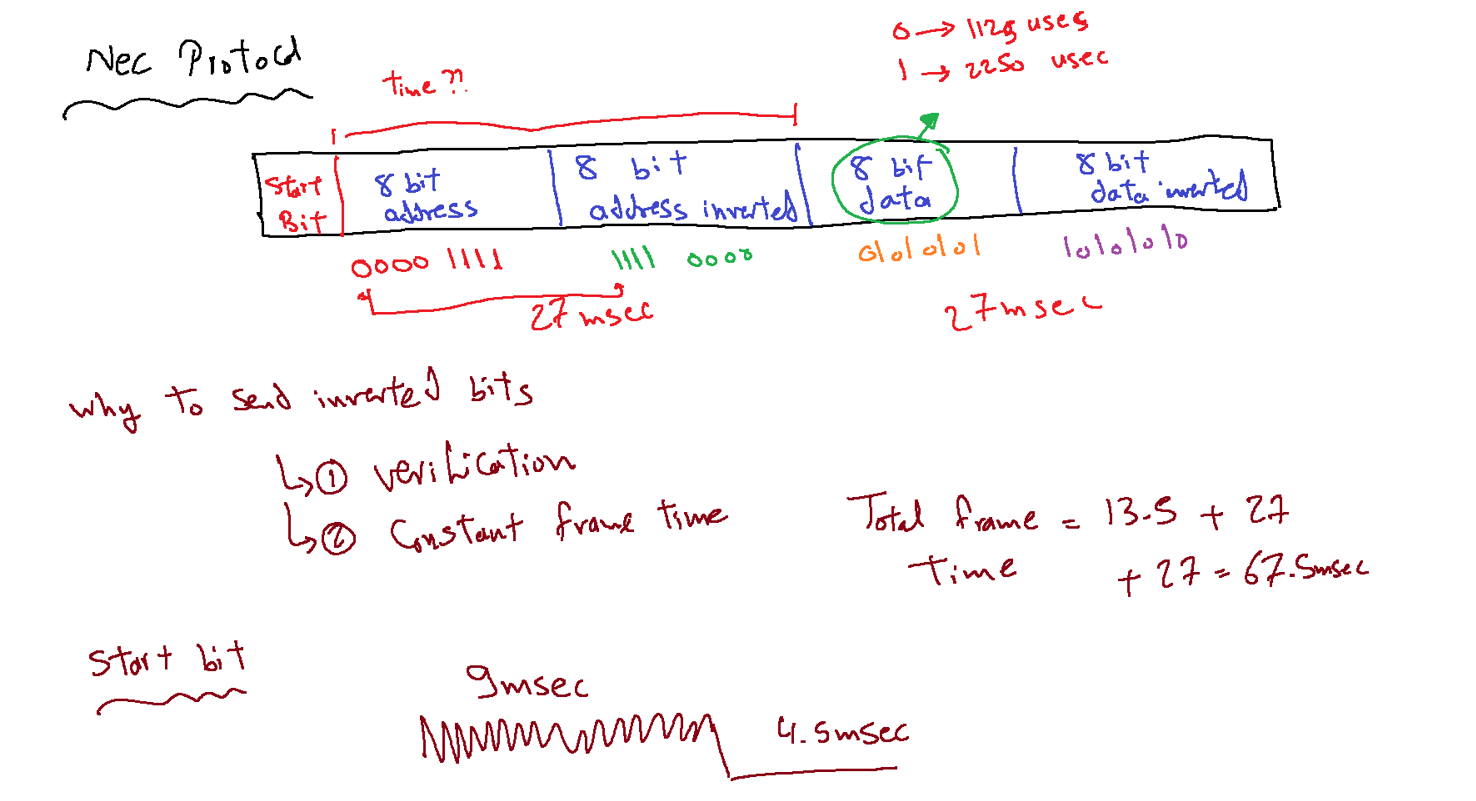 Nec Protocol
0 → 1125 usec
1 → 2250 usec
time ??
Start Bit
8 bit address
8 bit address inverted
8 bit data
8 bit data inverted
0000 1111
1111 0000
01010101
10101010
27 msec
27 msec
why to send inverted bits
↳ ① verification
↳ ② Constant frame time
Total frame = 13.5 + 27
time + 27 = 67.5msec
Start bit
9msec
4.5msec